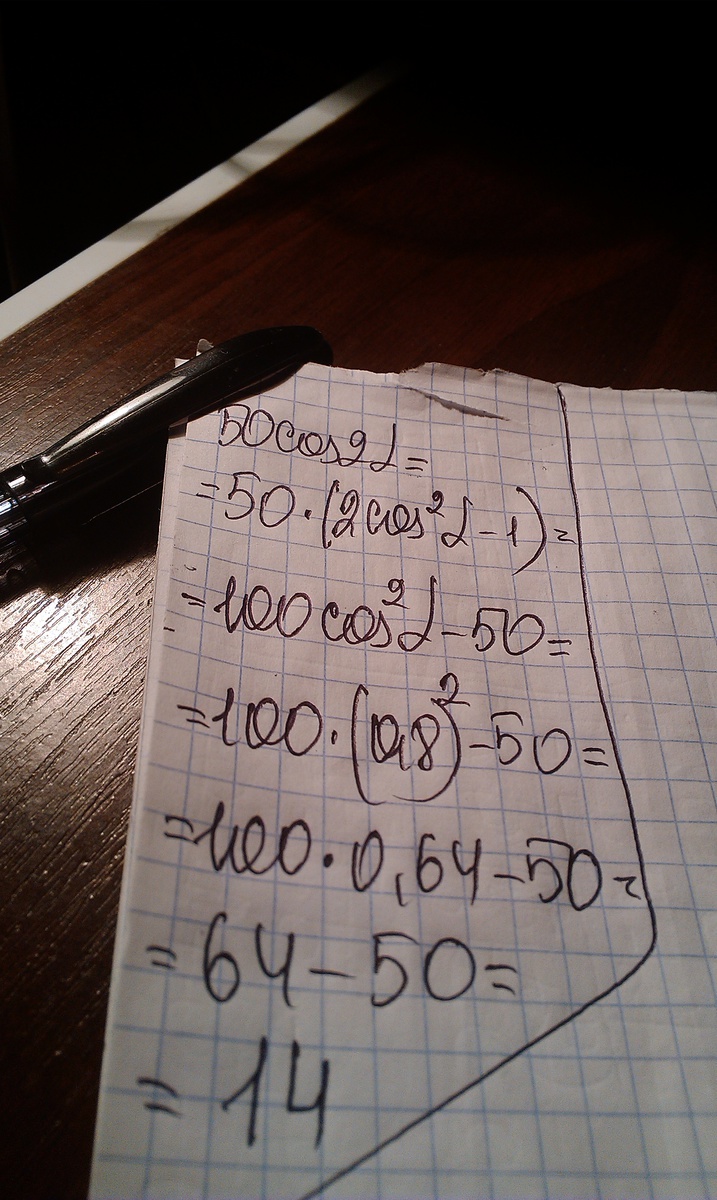 50cos2α=
=50·(2cos²α-1)=
=100cos²α-50=
=100·(0,8)²-50=
=100·0,64-50=
=64-50=
=14